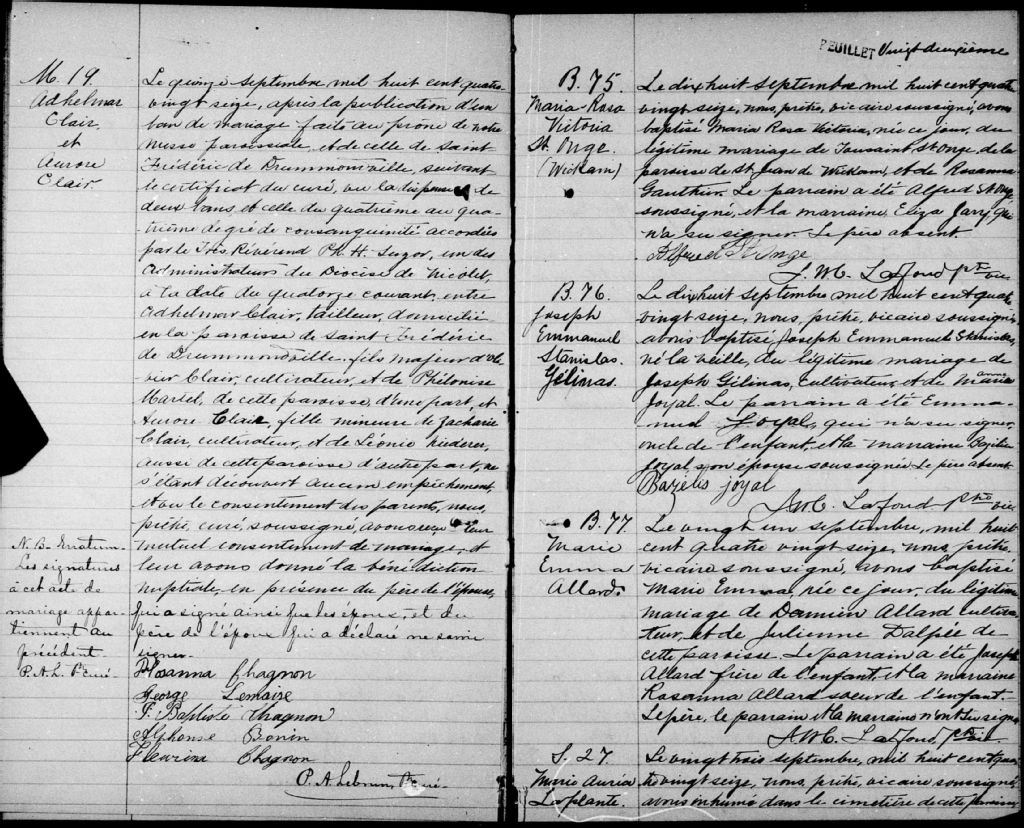 M. 19.
Adhelmar
Clair,
et
Aurore
Clair.
Le quinze septembre mil huit cent quatre-
vingt seize, après la publication d'un
ban de mariage faite au prône de notre
messe paroissiale, et de celle de Saint
Frédéric de Drummondville, suivant
le certificat du curé, vu la dispense de
deux bans et celle du quatrième au qua-
trième degré de consanguinité accordés
par le Très Révérend Ph. H. Suzor, un des
Administrateurs du Diocèse de Nicolet,
à la date du quatorze courant, entre
Adhelmar Clair, tailleur, domicilié
en la paroisse de Saint Frédéric
de Drummondville, fils majeur d'Oli-
vier Clair, cultivateur, et de Philonise
Martel, de cette paroisse, d'une part, et
Aurore Clair, fille mineure de Zacharie
Clair, cultivateur, et de Léonie
aussi de cette paroisse d'autre part, ne
s'étant découvert aucun empêchement,
et vu le consentement des parents, nous,
prêtre, curé, soussigné avons reçu leur
mutuel consentement de mariage, et
leur avons donné la bénédiction
nuptiale, en présence du père de l'épouse,
qui a signé ainsi que les époux, et du
père de l'époux qui a déclaré ne savoir
signer.
N. B. Erratum.
Les signatures
à cet acte de
mariage appar-
tiennent au
précédent
P.A.L. Ptre curé.
Rosanna Chagnon
George Lemaire
J. Baptiste Chagnon
Alphonse Bonin
Fleurina Chagnon
P. A. Lebrun, Ptre curé.
FEUILLET Vingt deuxième
B. 75.
Maria-Rosa
Victoria
St. Onge.
(Wickam)
Le dix huit septembre mil huit cent quatre
vingt seize, nous, prêtre, vicaire soussigné, avons
baptisé Maria Rosa Victoria, née ce jour, du
légitime mariage de Toussaint St Onge, de la
paroisse de St Jean de Wickam, et de Rosanna
Gauthier. Le parrain a été Alfred St Onge
soussigné, et la marraine Eliza Jary, qui
n'a su signer. Le père absent.
Alfred St Onge
J. W. C. Lafond Ptre vic
B. 76.
Joseph
Emmanuel
Stanislas
Gélinas.
Le dix huit septembre mil huit cent quatre
vingt seize, nous, prêtre, vicaire soussigné,
avons baptisé Joseph Emmanuel Stanislas,
né la veille, du légitime mariage de
Joseph Gélinas, cultivateur, et de Marie anne
Joyal. Le parrain a été Emma-
nuel Joyal, qui n'a su signer,
oncle de l'enfant, et la marraine Bazilie
Joyal, son épouse soussignée. Le père absent
Bazélis joyal
Lafond Ptre vic
B. 77.
Marie
Emma
Allard.
Le vingt un septembre, mil huit
cent quatre vingt seize, nous, prêtre,
vicaire soussigné, avons baptisé
Marie Emma, née ce jour, du légitime
mariage de Damien Allard cultiva-
teur, et de Julienne Dalpée de
cette paroisse. Le parrain a été Joseph
Allard frère de l'enfant, et la marraine
Rosanna Allard soeur de l'enfant.
Le père, le parrain et la marraine n'ont su signer
Lafond Ptre vic
S. 27
Marie Auréa
Laplante.
Le vingt trois septembre, mil huit cent quat-
re vingt seize, nous, prêtre, vicaire soussigné,
avons inhumé dans le cimetière de cette paroisse